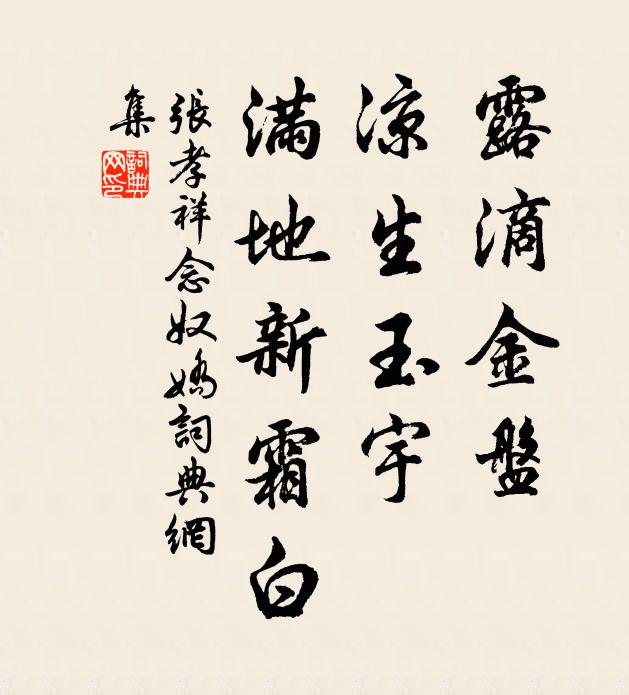 露滴金盤
涼生玉宇
滿地新霜白
張孝祥念奴嬌詞典網
集
詞典
网印